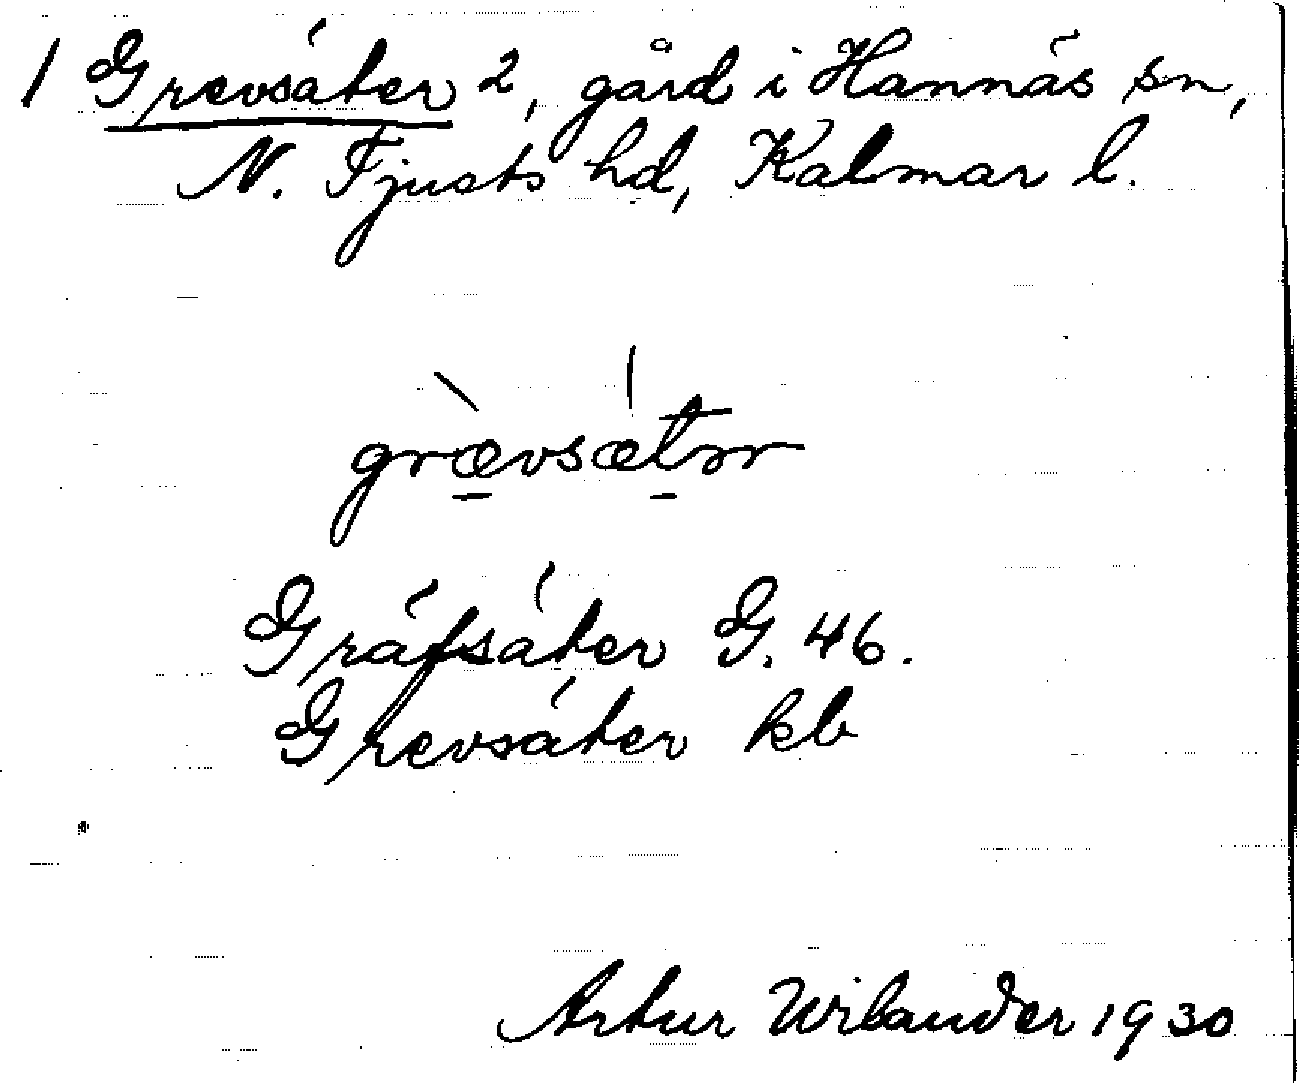 1 Grevsäter 2, gård i Hannäs sn,
N. Tjusts hd, Kalmar l.
grævsætrr
Gräfsäter G. 46.
Grevsäter kb
Artur Wilander 1930